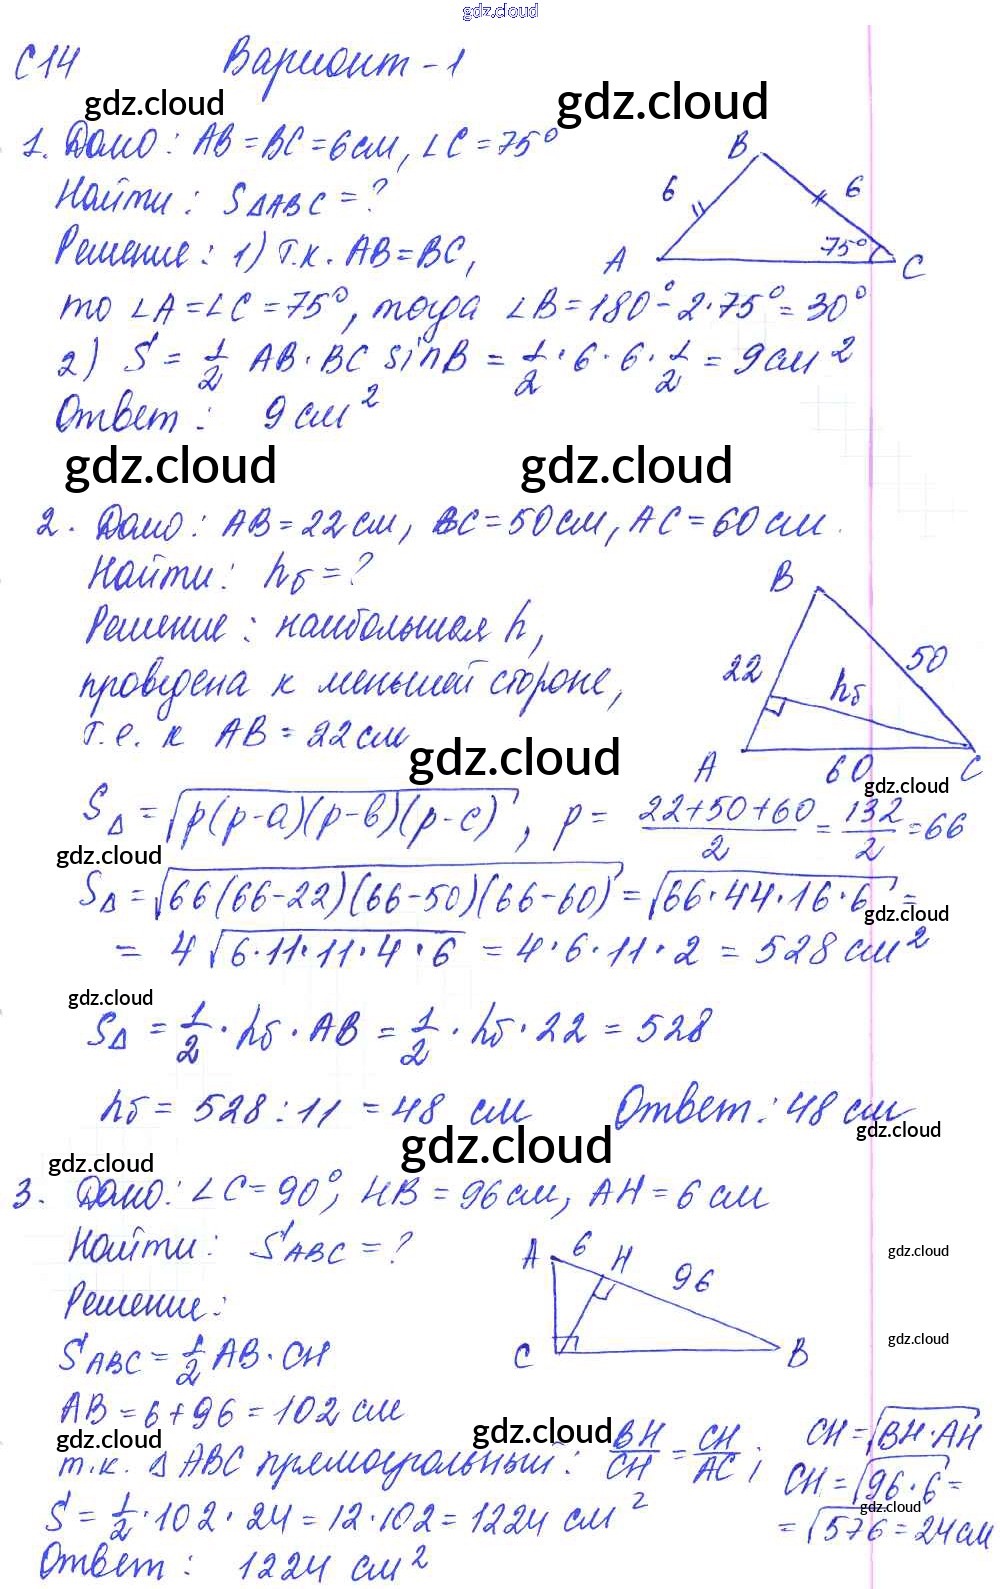 gdz.cloud
С14 Вариант-1
gdz.cloud gdz.cloud
1. Дано: AB=BC=6см, ∠C=75°
Найти: S△ABC=?
Решение: 1) т.к. AB=BC,
то ∠A=∠C=75°, тогда ∠B=180°-2·75°=30°
2) S=1/2 AB·BC sinB=1/2·6·6·1/2=9см²
Ответ: 9см²
B
6 6
75°
A C
gdz.cloud gdz.cloud
2. Дано: AB=22см, BC=50см, AC=60см.
Найти: hб=?
Решение: наибольшая h,
проведена к меньшей стороне,
т.е. к AB=22см
B
22 50
hб
A 60 C
gdz.cloud gdz.cloud
S△=√p(p-a)(p-b)(p-c), p=(22+50+60)/2=132/2=66
gdz.cloud
S△=√66(66-22)(66-50)(66-60)=√66·44·16·6=
gdz.cloud
=4√6·11·11·4·6=4·6·11·2=528см²
gdz.cloud
S△=1/2·hб·AB=1/2·hб·22=528
hб=528:11=48 см Ответ: 48см
gdz.cloud gdz.cloud
gdz.cloud
3. Дано: ∠C=90°, HB=96см, AH=6см
Найти: SABC=?
Решение:
SABC=1/2 AB·CH
A 6 H
96
C B
gdz.cloud
gdz.cloud
AB=6+96=102см
gdz.cloud gdz.cloud
т.к. △ABC прямоугольный: BH/CH=CH/AC;
CH=√BH·AH
CH=√96·6=
gdz.cloud
=√576=24см
S=1/2·102·24=12·102=1224 см²
Ответ: 1224 см²